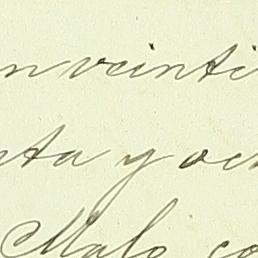 n veinti
nta y och
Malo, co